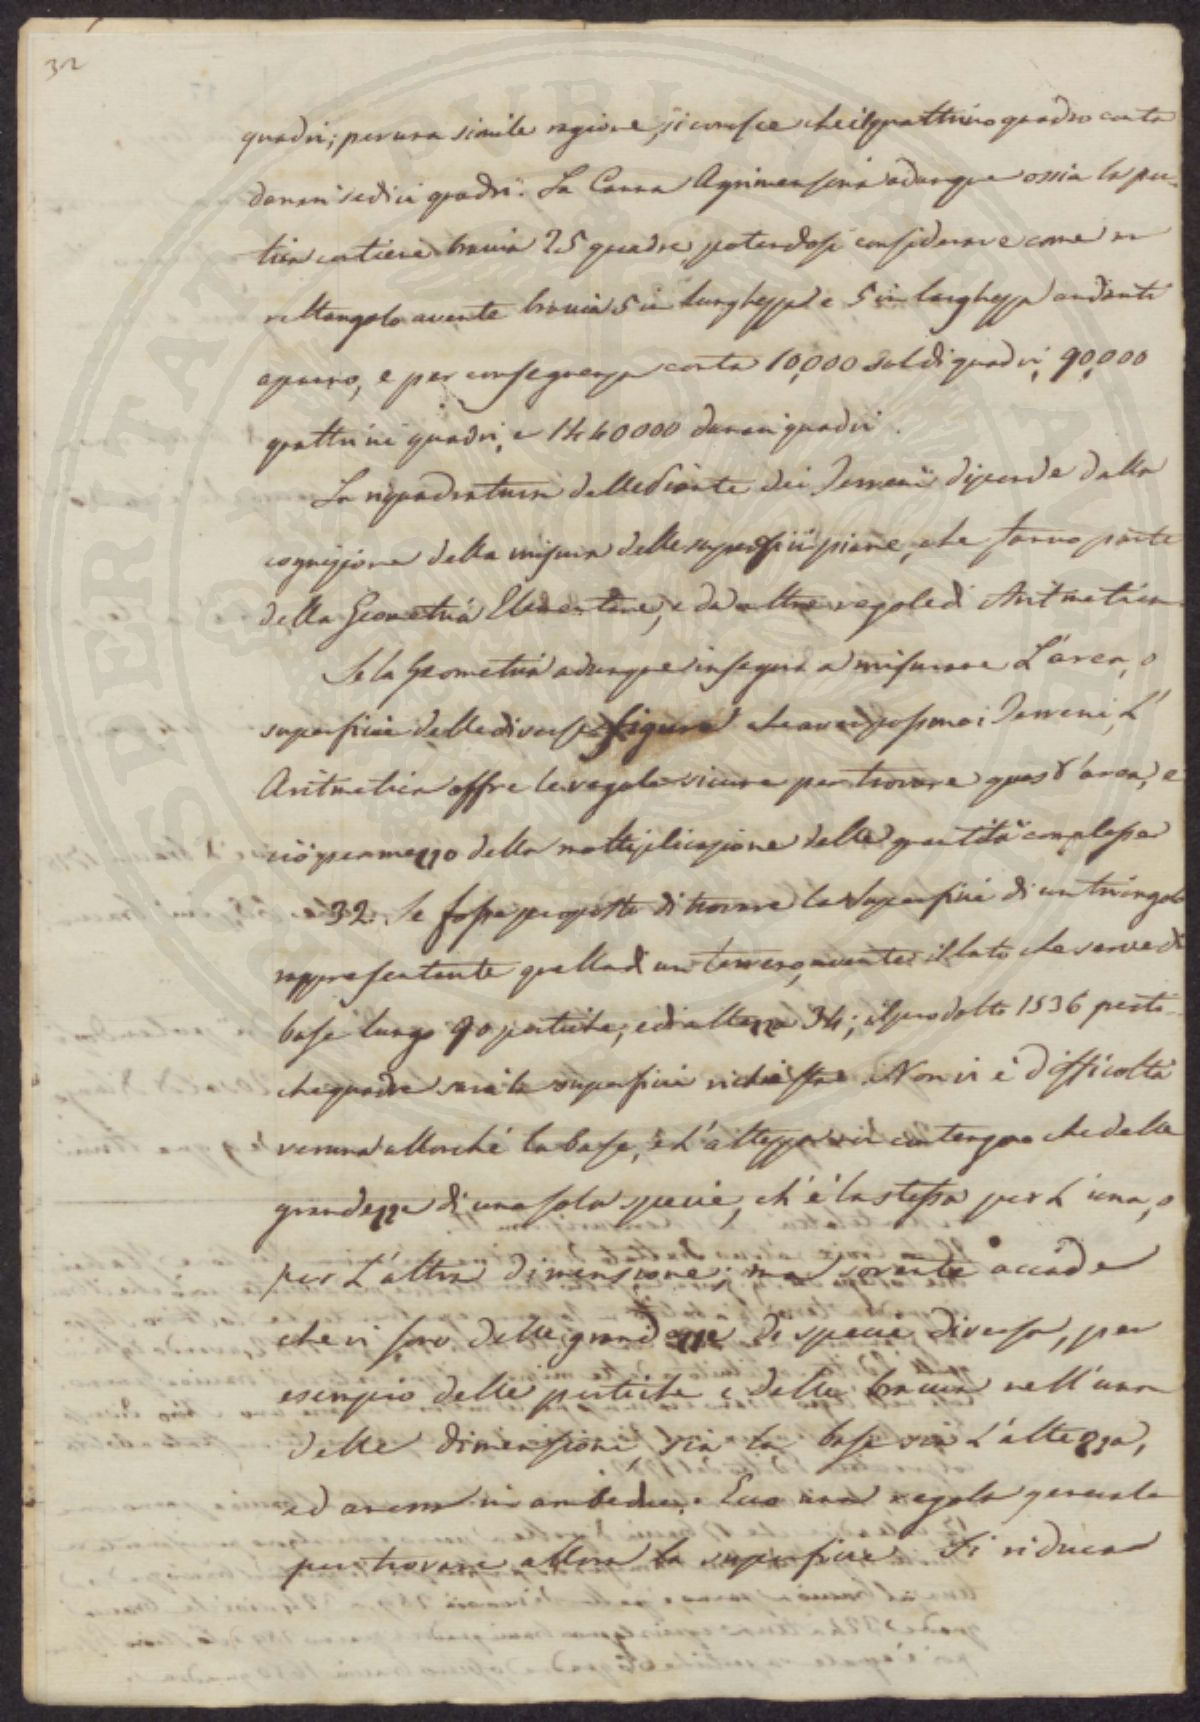 32
quadri; per una simile ragione, si conosce che il quattrino quadro conta
danari sedici quadri. La Canna Agrimensoria adunque ossia la per-
tica contiene braccia 25 quadre, potendosi considerare come un
rettangolo avente braccia 5 in lunghezza e 5 in larghezza andanti
a panno, e per conseguenza conta 10,000 soldi quadri, 90,000
quattrini quadri, e 1440000 danari quadri.
La riquadratura delle Piante dei Terreni dipende dalla
cognizione della misura delle superficii piane, che fanno parte
della Geometria Elementare, e da altre regole di Aritmetica
Se la Geometria adunque insegna a misurare L'area, o
superficie delle diverse figure che aver possono i Terreni, L'
Aritmetica offre le regole sicure per trovare quest'area, e
ciò per mezzo della moltiplicazione delle quantità complesse
32. Se fosse proposto di trovare la Superficie di un triangolo
rappresentante quella di un terreno, avente il lato che serve di
base lungo 90 pertiche, ed altezza 34; il prodotto 1536 perti-
che quadre sarà la superficie richiesta. Non vi è difficoltà
veruna allorché la base, e L'altezza non contengono che delle
grandezze di una sola specie, ch'è la stessa per L'una, o
per L'altra dimensione; ma sovente accade
che vi sono delle grandezze di specie diversa, per
esempio delle pertiche e delle braccia nell'una
delle dimensioni, sia la base sia L'altezza,
ed ancora in ambedue. Ecco una regola generale
per trovare allora la superficie. Si riducano